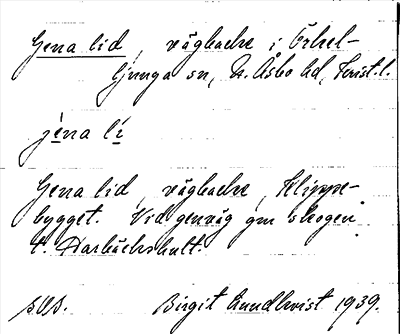 Gena lid, vägbacke i Örkel-
ljunga sn, N. Åsbo hd, Krist. l.
jèna lí
Gena lid, vägbacke, Klippe-
bygget. Vid genväg gm skogen
t. Harbäckshult.
Birgit Lundkvist 1939.